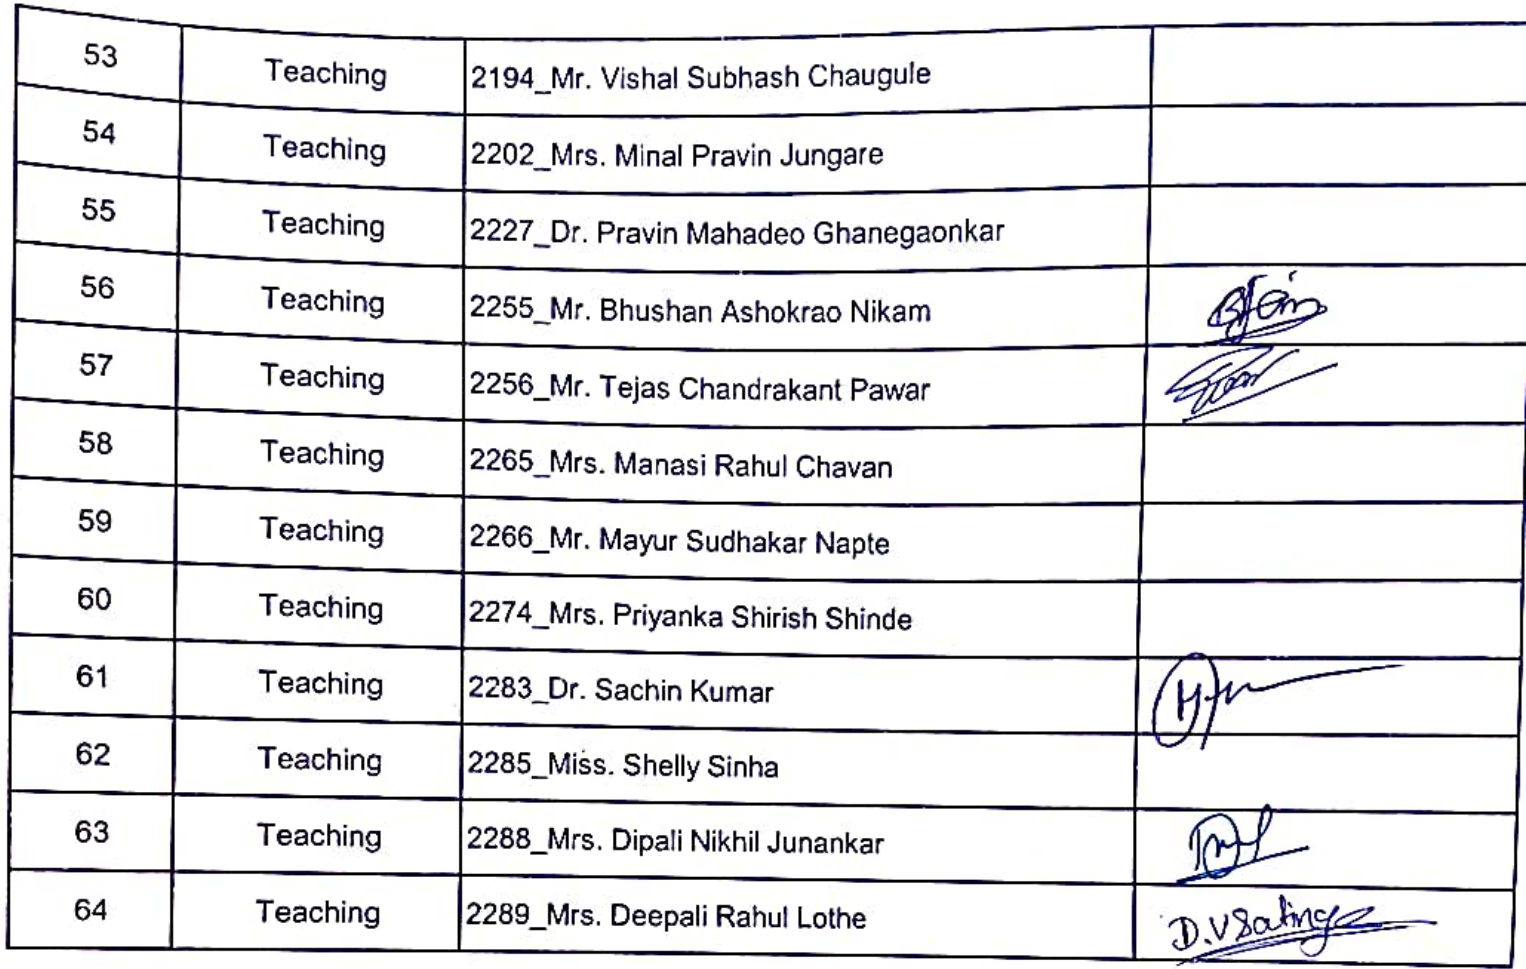 53 Teaching 2194_Mr. Vishal Subhash Chaugule
54 Teaching 2202_Mrs. Minal Pravin Jungare
55 Teaching 2227_Dr. Pravin Mahadeo Ghanegaonkar
56 Teaching 2255_Mr. Bhushan Ashokrao Nikam
57 Teaching 2256_Mr. Tejas Chandrakant Pawar
58 Teaching 2265_Mrs. Manasi Rahul Chavan
59 Teaching 2266_Mr. Mayur Sudhakar Napte
60 Teaching 2274_Mrs. Priyanka Shirish Shinde
61 Teaching 2283_Dr. Sachin Kumar
62 Teaching 2285_Miss. Shelly Sinha
63 Teaching 2288_Mrs. Dipali Nikhil Junankar
64 Teaching 2289_Mrs. Deepali Rahul Lothe